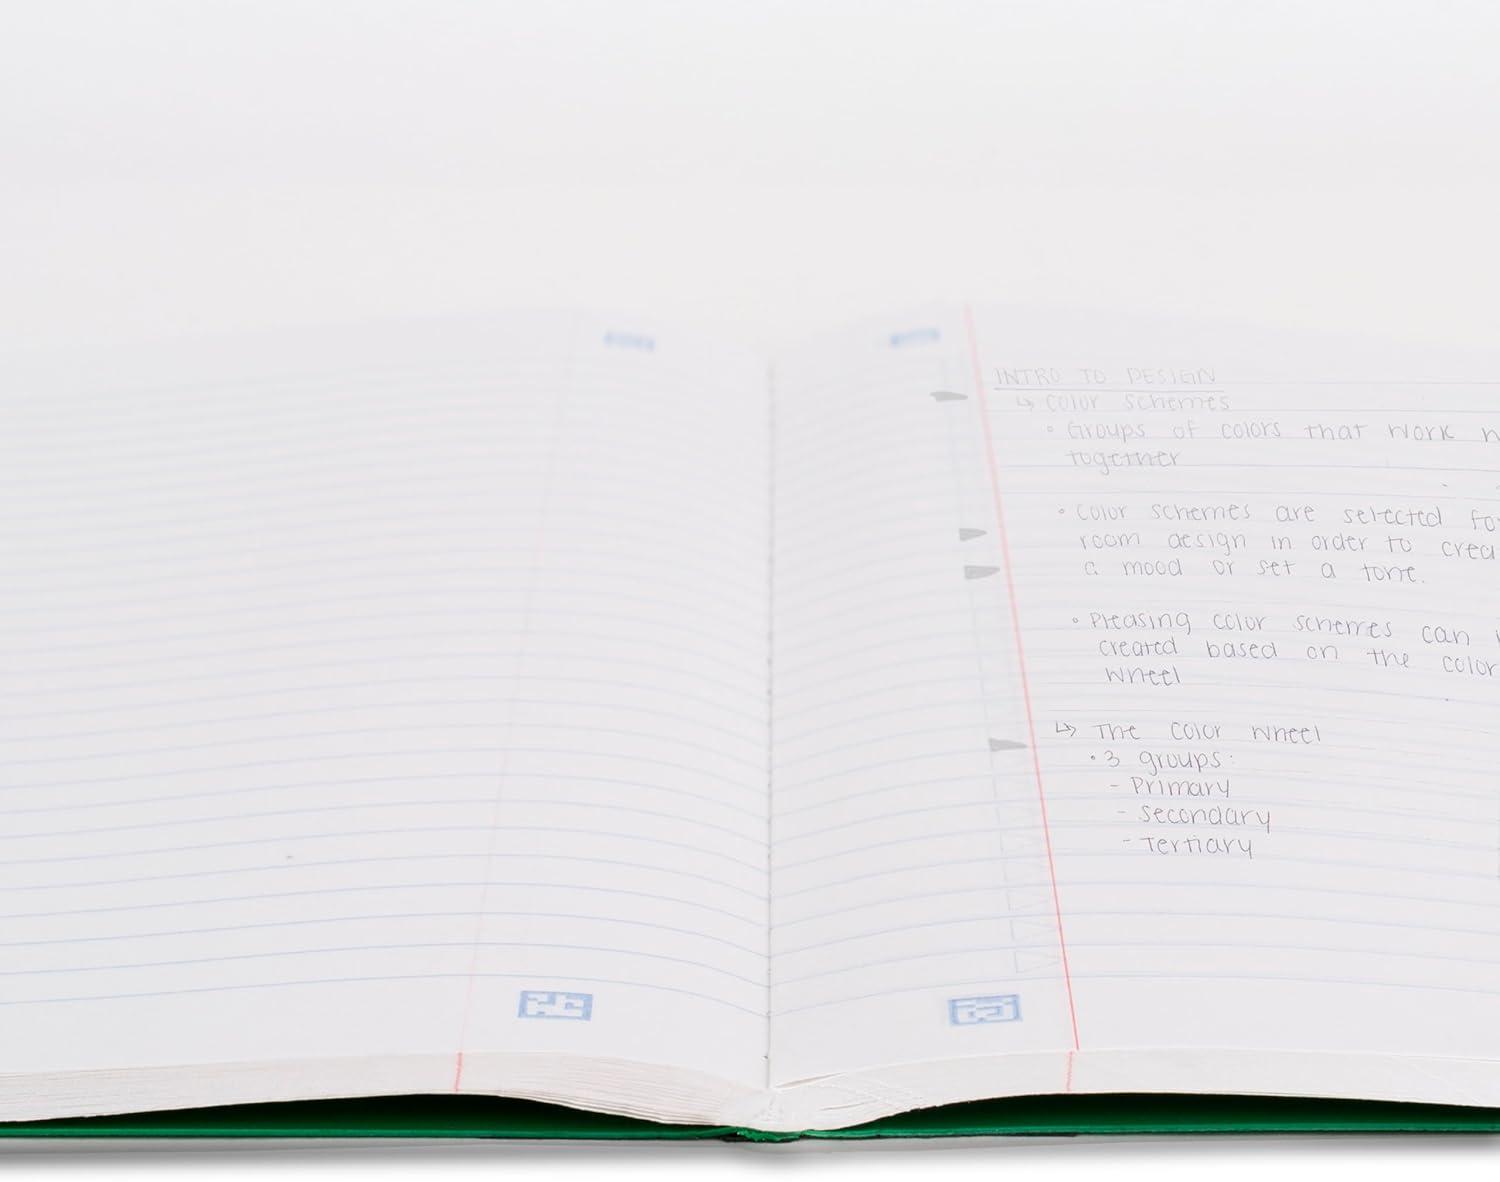 INTRO TO DESIGN
↳ Color schemes
• Groups of colors that work
together
• Color schemes are selected
room design in order to
a mood or set a tone.
• Pleasing color schemes can
created based on the color
wheel
↳ The color wheel
• 3 groups:
- Primary
- Secondary
- Tertiary